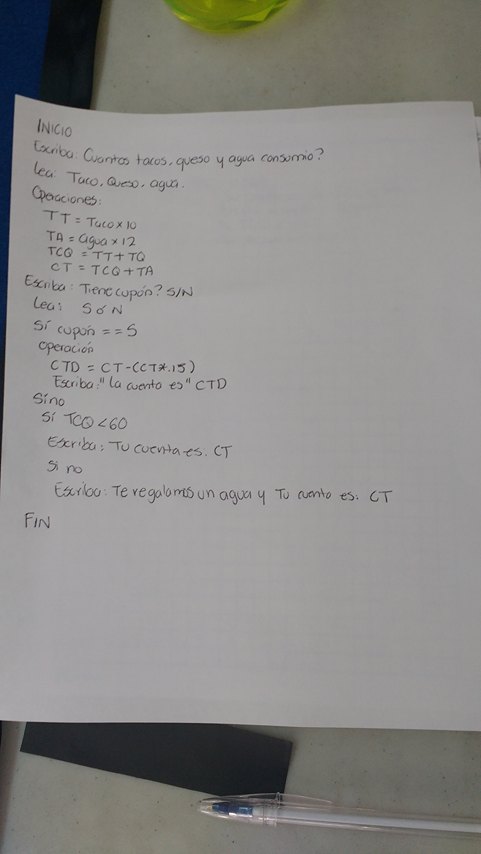 INICIO
Escriba: Cuantos tacos, queso y agua consumio?
Lea: Taco, Queso, agua.
Operaciones:
TT = Taco x 10
TA = agua x 12
TCQ = TT + TQ
CT = TCQ + TA
Escriba: Tiene cupón? S/N
Lea: S ó N
Sí cupón == S
Operación
CTD = CT-(CT*.15)
Escriba: "La cuenta es" CTD
Sino
Sí TCQ < 60
Escriba: Tu cuenta es. CT
Si no
Escriba: Te regalamos un agua y Tu cuenta es: CT
FIN